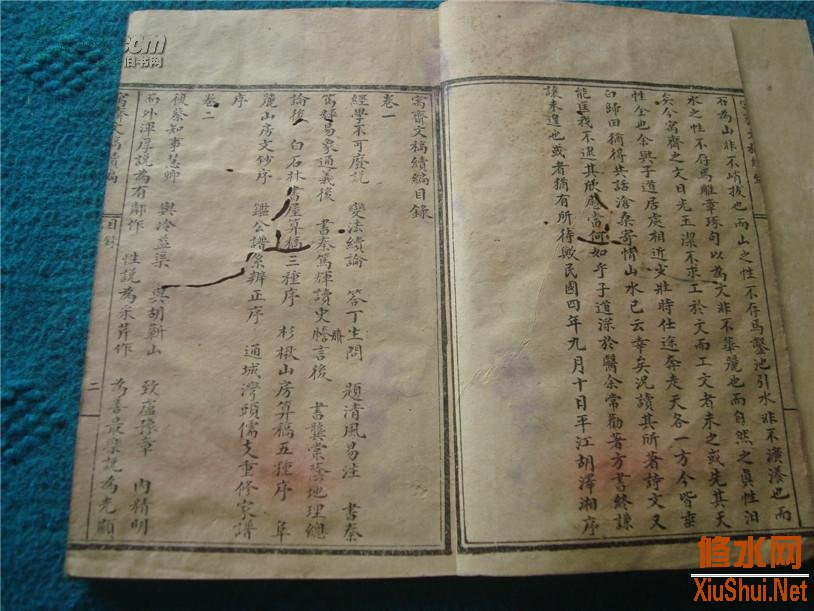 石為山非不峭拔也而山之性不存焉鑿池引水非不漾也而
水之性不存焉雕章琢句以為文非不華麗也而自然之真性汩
矣今寓齋之文日光玉潔不求工於文而工文者未之或先其天
性全也余與子道居處相近少壯時仕途奔走天各一方今皆垂
白歸田猶得共話滄桑寄情山水已云幸矣況讀其所著詩文又
能匡我不逮其欣應當何如乎子道深於醫余常勸著方書終謙
讓未遑也或者猶有所待歟民國四年九月十日平江胡澤湘序
寓齋文稿續編目錄
卷一
經學不可廢說 變法續論 答丁生問 題清風易注 書秦
篤輝易象通義後 書秦篤輝讀史賸言後 書龔棠蔭地理總
論後 白石林書屋算稿三種序 杉楸山房算稿五種序 阜
麓山房文鈔序 鑑公譜系辨正序 通城灣頭儒支重修家譜
序
卷二
復蔡知事慧卿 與冷益渠 與胡蘄山 致盧豫章 內精明
而外渾厚說為有鄰作 性說為采茸作 為善最樂說為光顯
寓齋文稿續編 目錄 二
com
旧书网
修水网
XiuShui.Net